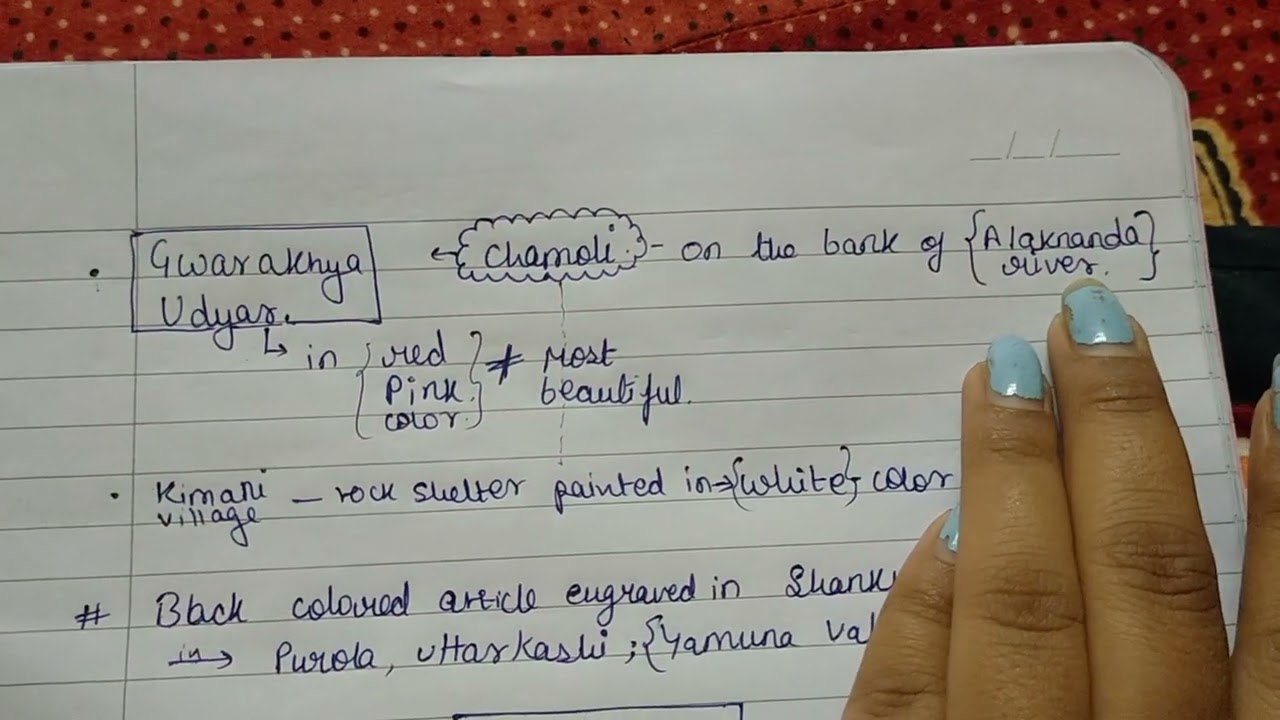 __/__/____
• Gwarakhya ← Chamoli - on the bank of {Alaknanda
Udyar. river.}
↳ in {red * Most
Pink beautiful.
color.}
• Kimani – rock shelter painted in→{white} color
village
# Black coloured article engraved in
in→ Purola, Uttarkashi ; {Yamuna